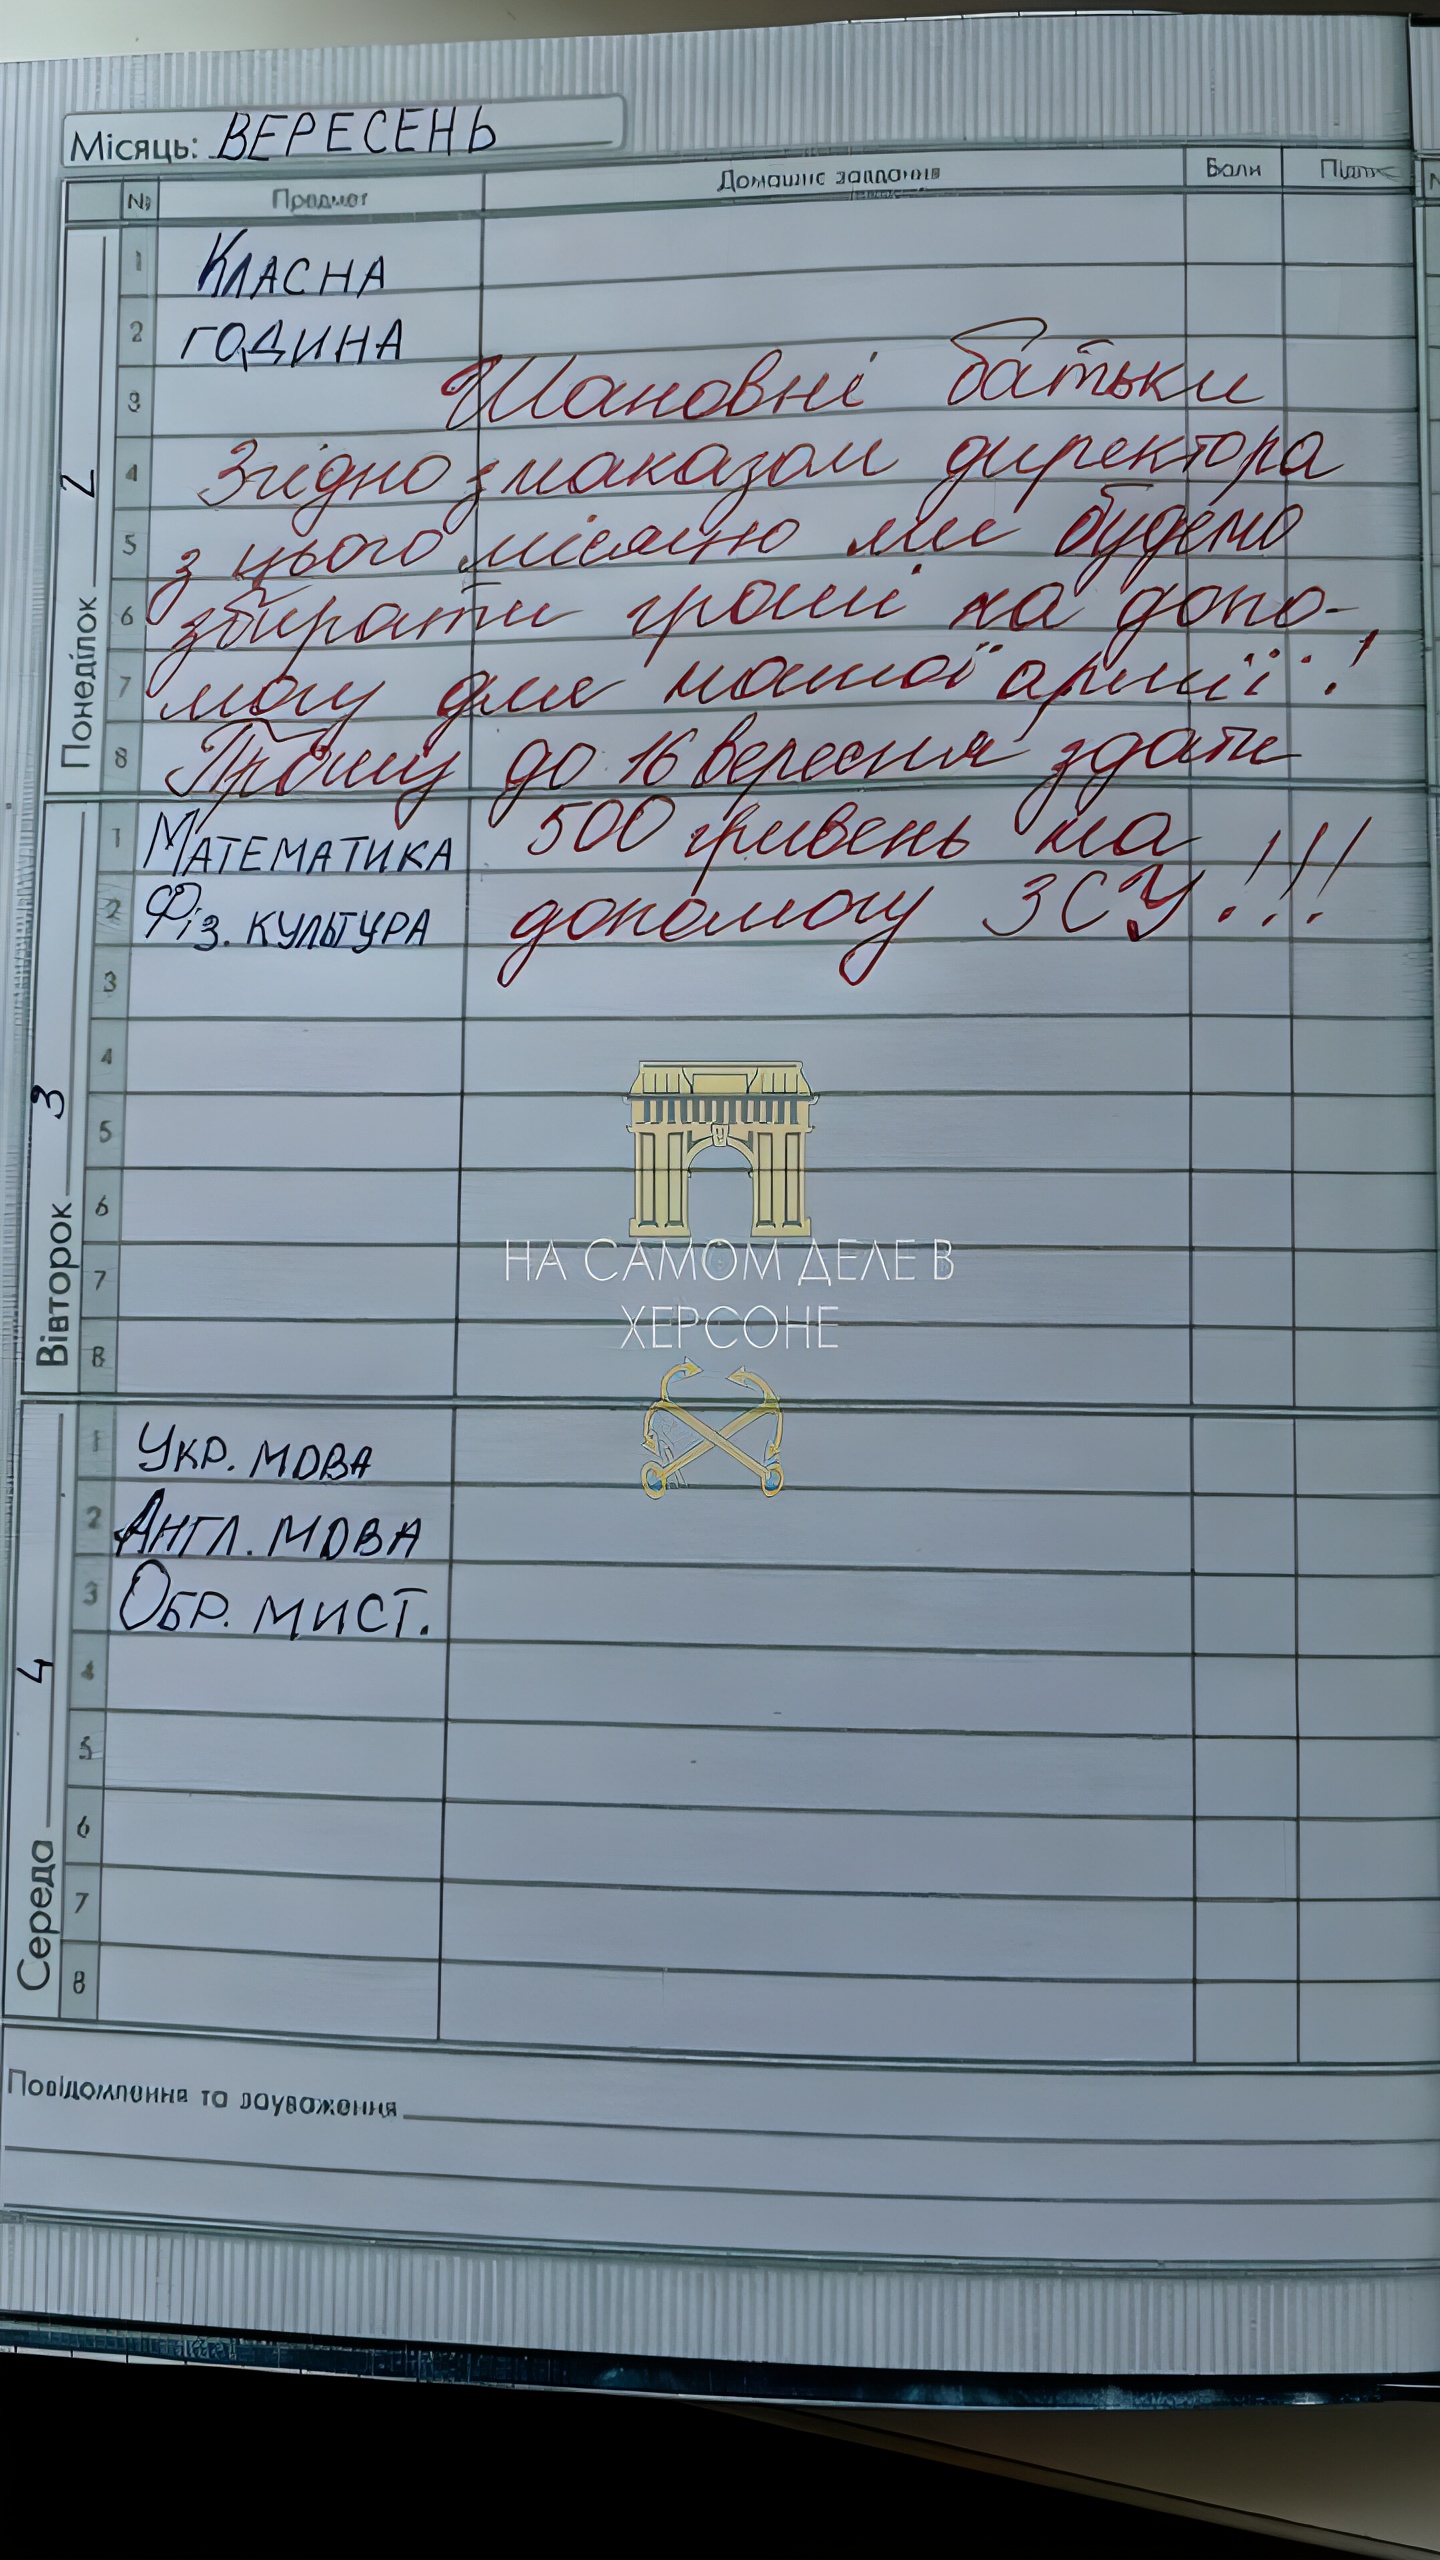 Місяць: ВЕРЕСЕНЬ
№ Предмет Домашнє завдання Бали Підпис
Понеділок 2
1 КЛАСНА
2 ГОДИНА
3 Шановні батьки
4 Згідно з наказом директора
5 з цього місяцю ми будемо
6 збирати гроші на допо-
7 могу для нашої армії!
8 Прошу до 16 вересня здати
Вівторок 3
1 МАТЕМАТИКА 500 гривень на
2 ФІЗ. КУЛЬТУРА допомогу ЗСУ!!!
3
4
5
6
7
8
НА САМОМ ДЕЛЕ В
ХЕРСОНЕ
Середа 4
1 УКР. МОВА
2 АНГЛ. МОВА
3 ОБР. МИСТ.
4
5
6
7
8
Повідомлення та зауваження